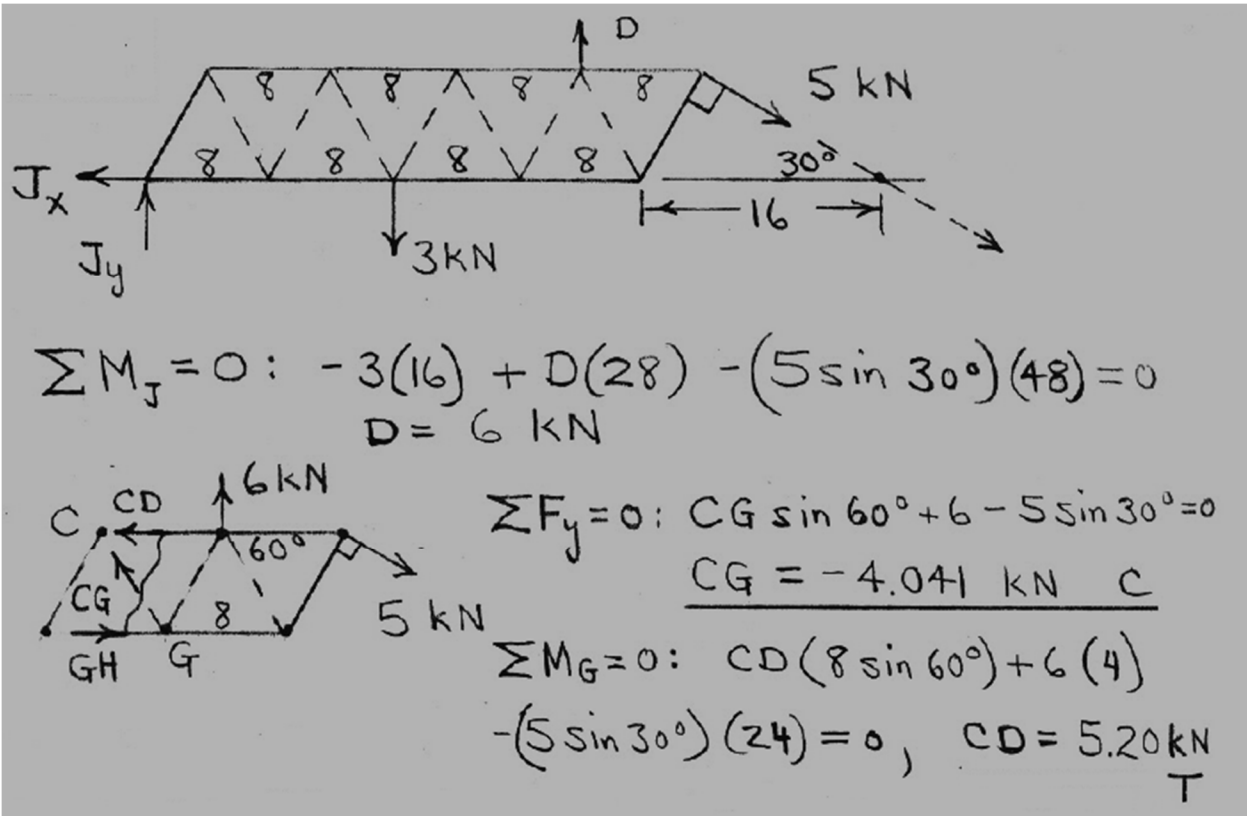 D
8 8 8 8
5 kN
8 8 8 8
30°
J_x
16
J_y
3kN
ΣM_J = 0 : -3(16) + D(28) - (5 sin 30°)(48) = 0
D = 6 kN
6 kN
CD
C
60°
CG
8
5 kN
GH G
ΣF_y = 0 : CG sin 60° + 6 - 5 sin 30° = 0
CG = -4.041 kN C
ΣM_G = 0 : CD (8 sin 60°) + 6 (4)
-(5 sin 30°)(24) = 0, CD = 5.20 kN
T